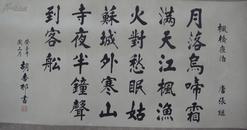 楓橋夜泊 唐 張繼
月落烏啼霜
滿天江楓漁
火對愁眠姑
蘇城外寒山
寺夜半鐘聲
到客船
書